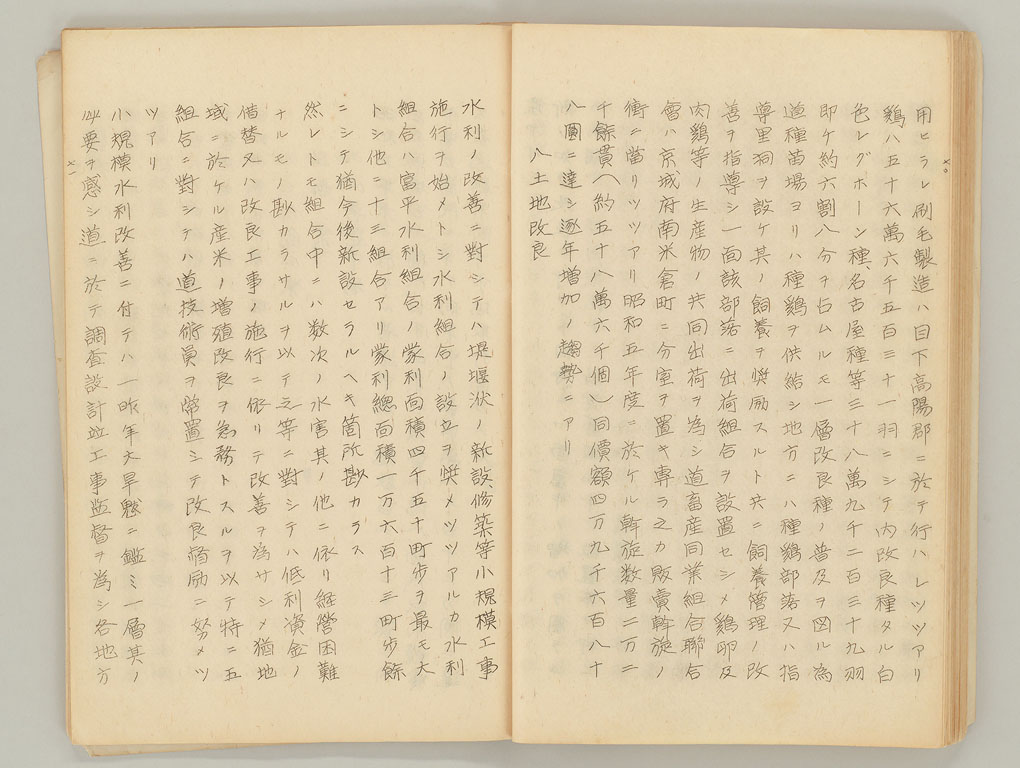 用ヒラレ刷毛製造ハ目下高陽郡ニ於テ行ハレツツアリ
鶏ハ五十六萬六千五百三十一羽ニシテ内改良種タル白
色レグホーン種、名古屋種等三十八萬九千二百三十九羽
即ケ約六割八分ヲ占ムルモ一層改良種ノ普及ヲ図ル為
道種苗場ヨリハ種鶏ヲ供給シ地方ニハ種鶏部落又ハ指
導里洞ヲ設ケ其ノ飼養ヲ奨励スルト共ニ飼養管理ノ改
善ヲ指導シ一面該部落ニ出荷組合ヲ設置セシメ鶏卵及
肉鶏等ノ生産物ノ共同出荷ヲ為シ道畜産同業組合聯合
會ハ京城府南米倉町ニ分室ヲ置キ専ラ之カ販賣斡旋ノ
衝ニ當リツツアリ昭和五年度ニ於ケル斡旋数量二万二
千餘貫(約五十八萬六千個)同價額四万九千六百八十
八圓ニ達シ逐年増加ノ趨勢ニアリ
八土地改良
水利ノ改善ニ對シテハ堤堰洑ノ新設、修築等小規模工事
施行ヲ始メトシ水利組合ノ設立ヲ奨メツツアルカ水利
組合ハ富平水利組合ノ蒙利面積四千五十町歩ヲ最モ大
トシ他ニ十三組合アリ蒙利總面積一万六百十三町歩餘
ニシテ猶今後新設セラルヘキ箇所尠カラス
然レトモ組合中ニハ数次ノ水害其ノ他ニ依リ経營困難
ナルモノ尠カラサルヲ以テ之等ニ對シテハ低利資金ノ
借替又ハ改良工事ノ施行ニ依リテ改善ヲ為サシメ猶地
域ニ於ケル産米ノ増殖改良ヲ急務トスルヲ以テ特ニ五
組合ニ對シテハ道技術員ヲ常置シテ改良督励ニ努メツ
ツアリ
小規模水利改善ニ付テハ一昨年大旱魃ニ鑑ミ一層其ノ
必要ヲ感シ道ニ於テ調査設計竝工事監督ヲ為シ各地方